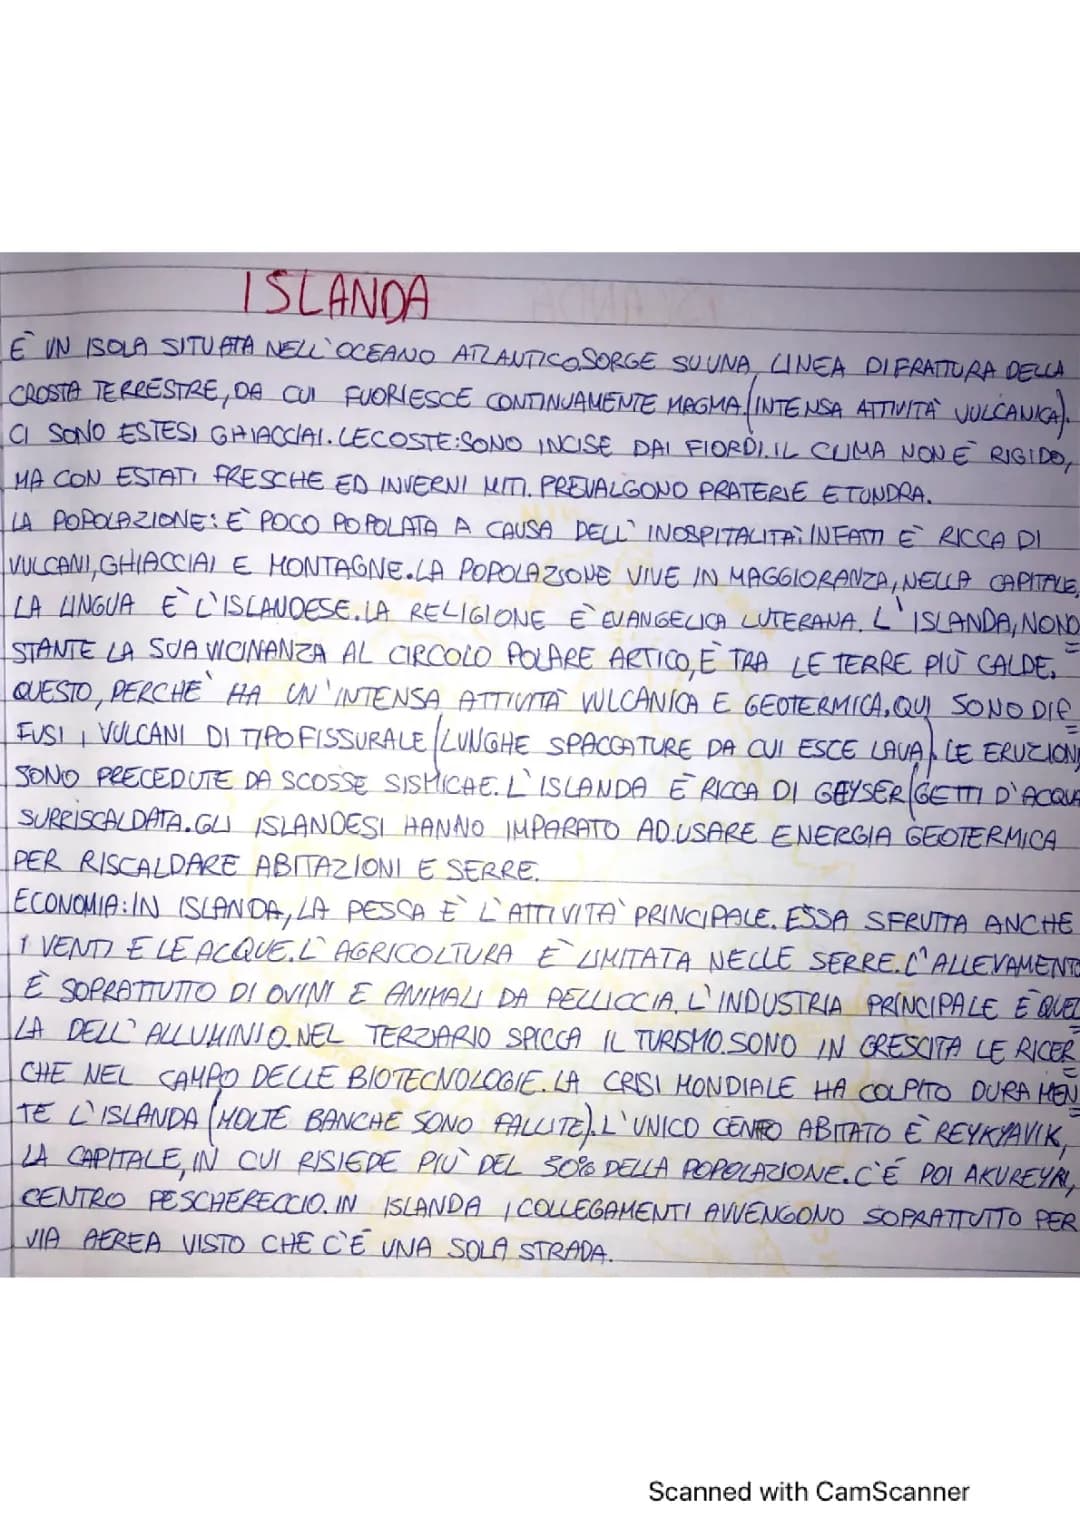 ISLANDA
È UN ISOLA SITUATA NELL'OCEANO ATLANTICO.SORGE SU UNA LINEA DI FRATTURA DELLA
CROSTA TERRESTRE, DA CUI FUORIESCE CONTINUAMENTE MAGMA (INTENSA ATTIVITÀ VULCANICA).
CI SONO ESTESI GHIACCIAI. LE COSTE:SONO INCISE DAI FIORDI. IL CLIMA NON È RIGIDO,
MA CON ESTATI FRESCHE ED INVERNI MITI. PREVALGONO PRATERIE E TUNDRA.
LA POPOLAZIONE: È POCO POPOLATA A CAUSA DELL' INOSPITALITÀ: INFATTI È RICCA DI
VULCANI, GHIACCIAI E MONTAGNE. LA POPOLAZIONE VIVE IN MAGGIORANZA, NELLA CAPITALE,
LA LINGUA È L'ISLANDESE. LA RELIGIONE È EVANGELICA LUTERANA. L'ISLANDA, NONO
STANTE LA SUA VICINANZA AL CIRCOLO POLARE ARTICO, È TRA LE TERRE PIÙ CALDE.
QUESTO, PERCHÈ HA UN'INTENSA ATTIVITÀ VULCANICA E GEOTERMICA. QUI SONO DIF
FUSI I VULCANI DI TIPO FISSURALE (LUNGHE SPACCATURE DA CUI ESCE LAVA). LE ERUZIONI
SONO PRECEDUTE DA SCOSSE SISMICHE. L'ISLANDA È RICCA DI GEYSER (GETTI D'ACQUA
SURRISCALDATA. GLI ISLANDESI HANNO IMPARATO AD USARE ENERGIA GEOTERMICA
PER RISCALDARE ABITAZIONI E SERRE.
ECONOMIA: IN ISLANDA, LA PESCA È L'ATTIVITÀ PRINCIPALE. ESSA SFRUTTA ANCHE
I VENTI E LE ACQUE. L'AGRICOLTURA È LIMITATA NELLE SERRE. L'ALLEVAMENTO
È SOPRATTUTTO DI OVINI E ANIMALI DA PELLICCIA. L'INDUSTRIA PRINCIPALE È QUEL
LA DELL'ALLUMINIO. NEL TERZIARIO SPICCA IL TURISMO. SONO IN CRESCITA LE RICER
CHE NEL CAMPO DELLE BIOTECNOLOGIE. LA CRISI MONDIALE HA COLPITO DURAMEN
TE L'ISLANDA (MOLTE BANCHE SONO FALLITE). L'UNICO CENTRO ABITATO È REYKYAVIK,
LA CAPITALE, IN CUI RISIEDE PIÙ DEL 30% DELLA POPOLAZIONE. C'È POI AKUREYRI,
CENTRO PESCHERECCIO. IN ISLANDA I COLLEGAMENTI AVVENGONO SOPRATTUTTO PER
VIA AEREA VISTO CHE C'È UNA SOLA STRADA.
Scanned with CamScanner